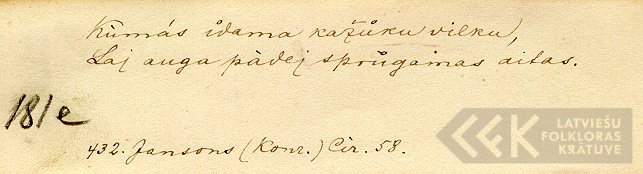 Kūmás īdama kažůku vilku,
Laj auga pàdēj sprůgainas aitas.
181e
432. Jansons (Konr.) Cir. 58.
LATVIEŠU
FOLKLORAS
KRĀTUVE